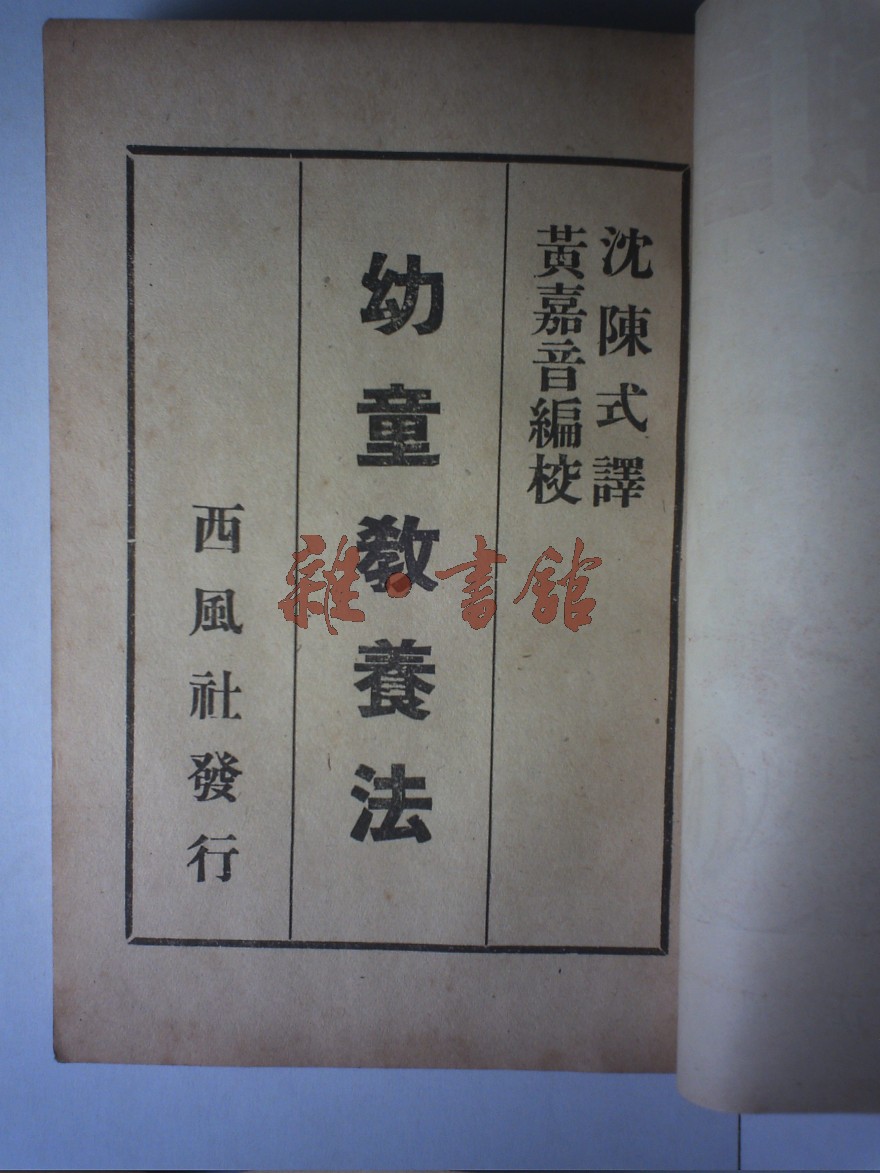 沈陳式譯
黃嘉音編校
幼童教養法
西風社發行
雜·書館